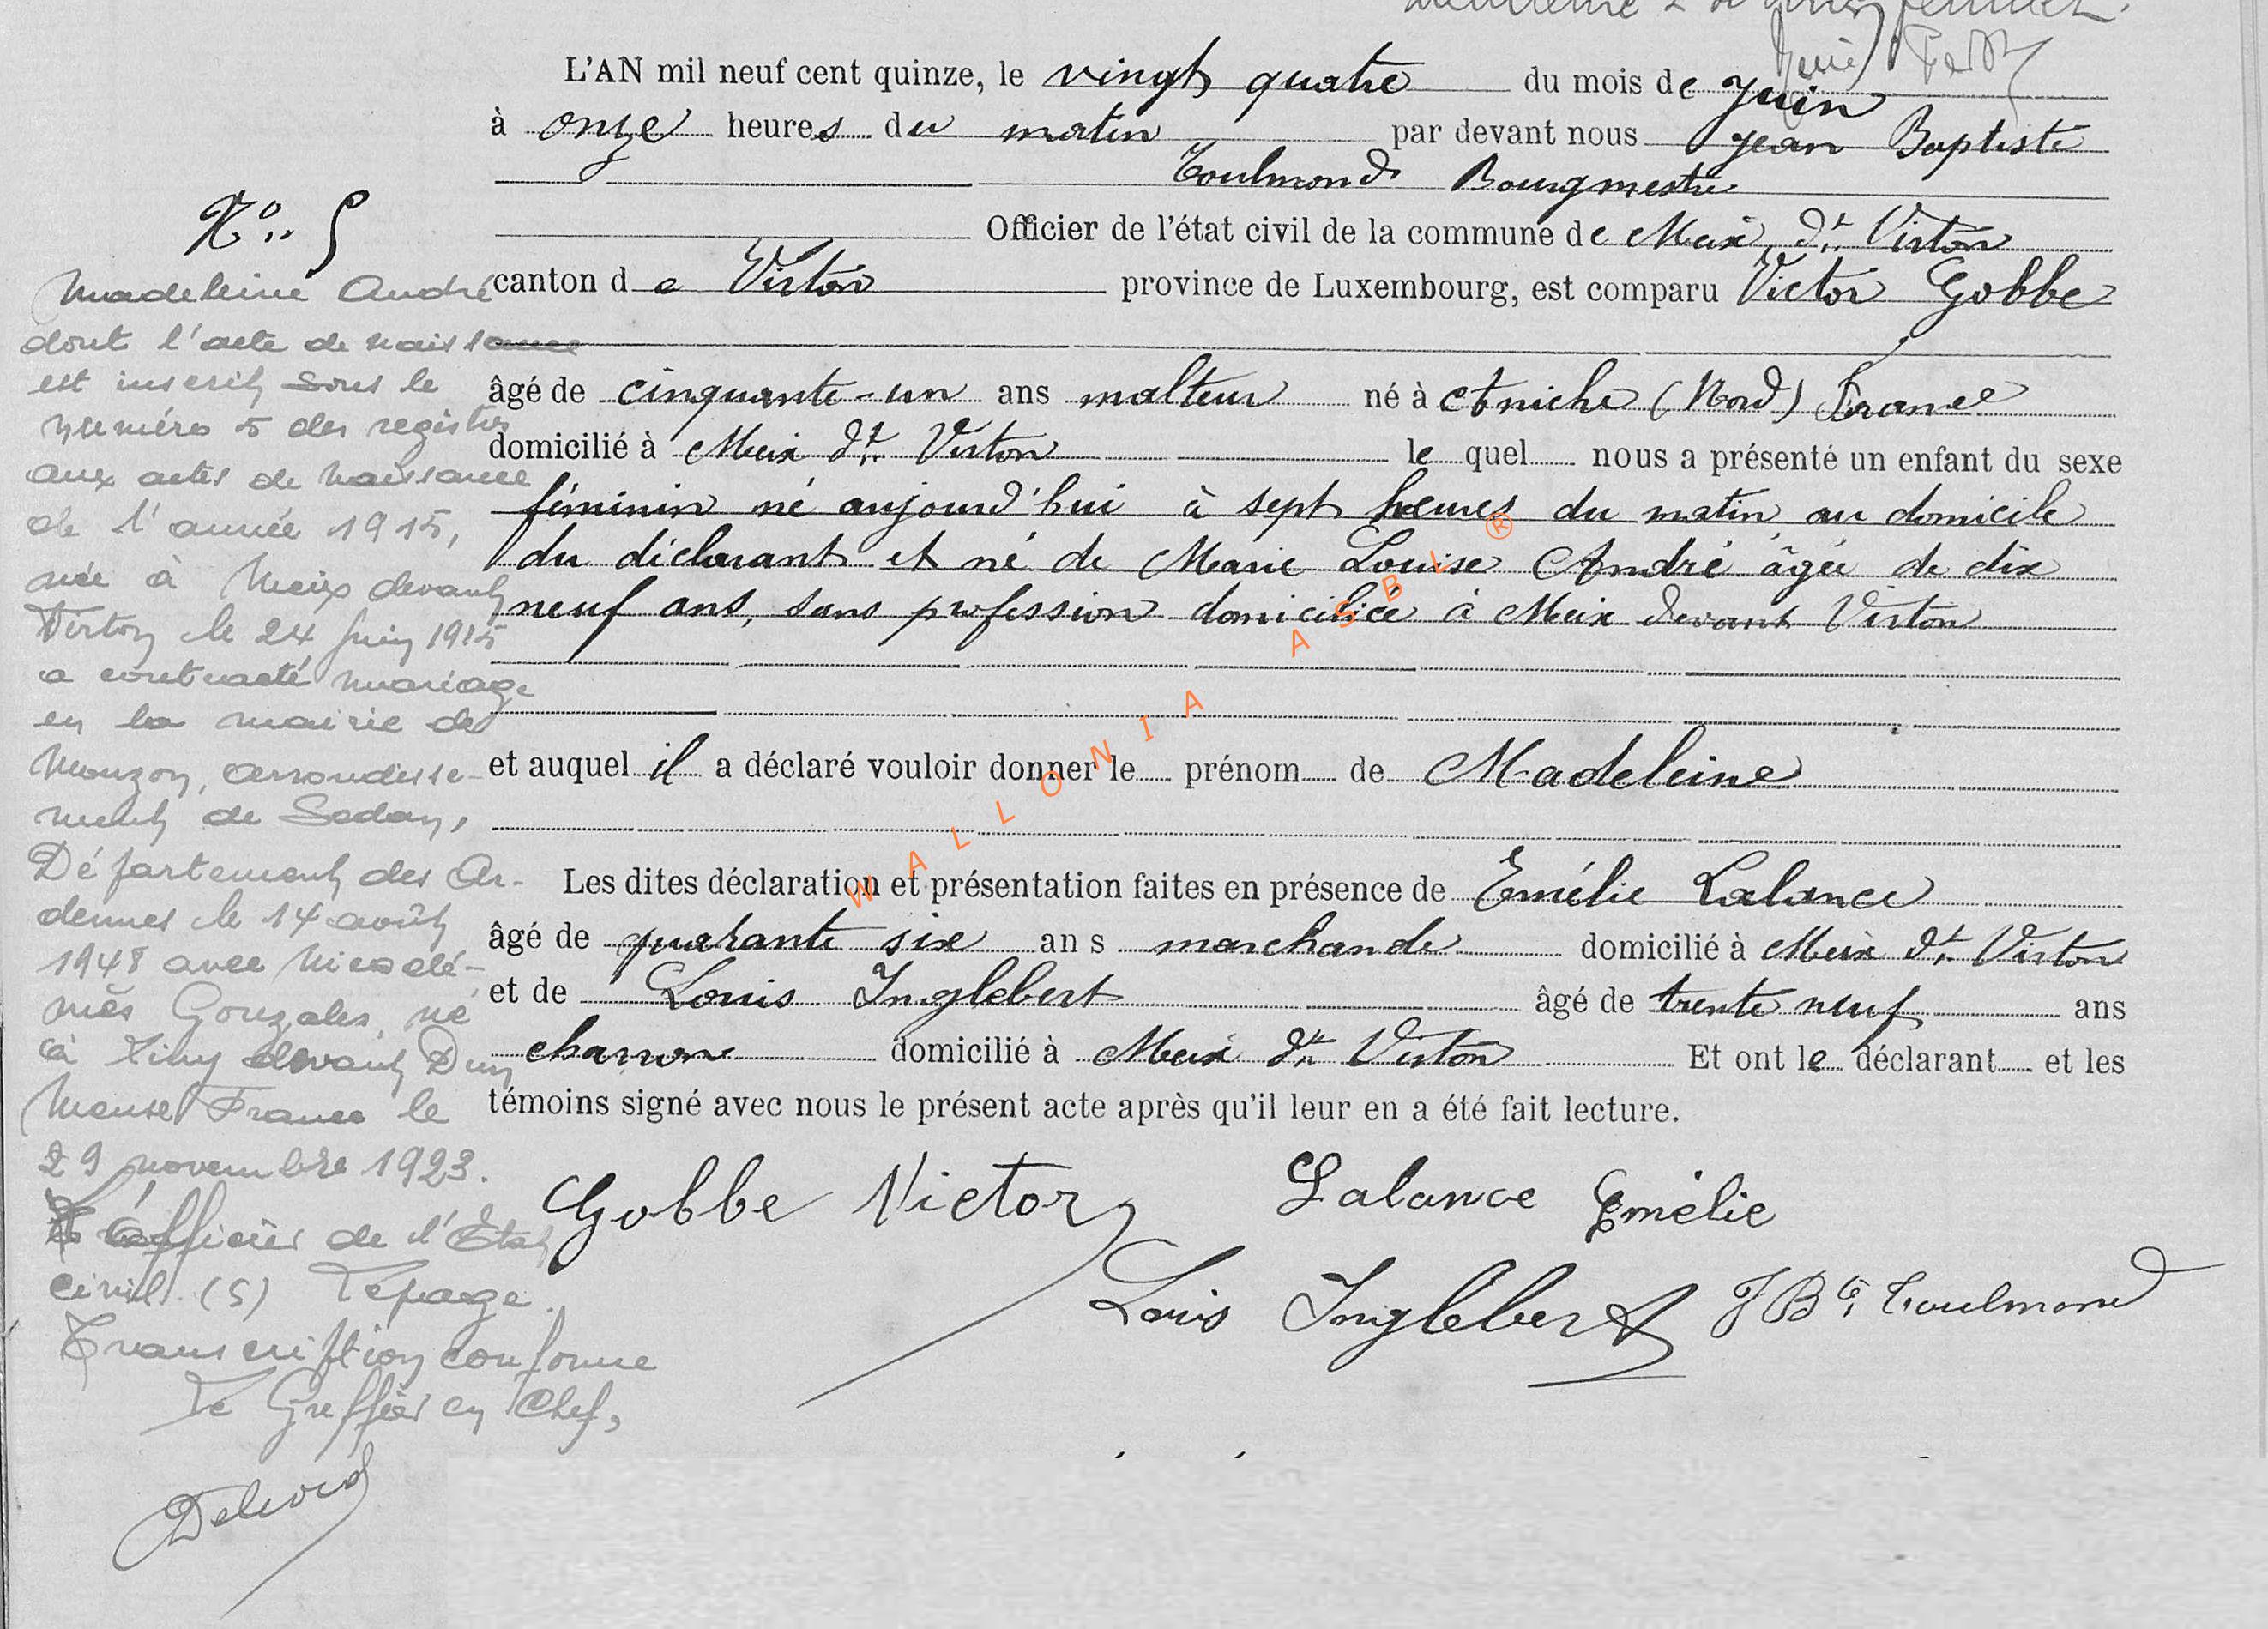 L'AN mil neuf cent quinze, le vingt quatre du mois de juin
à onze heures du matin par devant nous Jean Baptiste
Toulmond Bourgmestre
Officier de l'état civil de la commune de Meix dt Virton
canton de Virton province de Luxembourg, est comparu Victor Gobbe
âgé de cinquante-un ans malteur né à Aniche (Nord) France
domicilié à Meix dt Virton lequel nous a présenté un enfant du sexe
féminin né aujourd'hui à sept heures du matin au domicile
du déclarant et né de Marie Louise André âgée de dix
neuf ans, sans profession domiciliée à Meix devant Virton
et auquel il a déclaré vouloir donner le prénom de Madeleine
Les dites déclaration et présentation faites en présence de Emélie Lalance
âgé de quarante six ans marchande domicilié à Meix dt Virton
et de Louis Inglebert âgé de trente neuf ans
charron domicilié à Meix dt Virton Et ont le déclarant et les
témoins signé avec nous le présent acte après qu'il leur en a été fait lecture.
Gobbe Victor Lalance Emélie
Louis Inglebert J Bte Toulmond
No 5
Madeleine André
dont l'acte de naissance
est inscrit sous le
numéro 5 des registres
aux actes de naissance
de l'année 1915,
née à Meix devant
Virton le 24 juin 1915
a contracté mariage
en la mairie de
Mouzon, arrondisse-
ment de Sedan,
Département des Ar-
dennes le 14 août
1948 avec Nicodé-
mès Gonzales, né
à devant Dun
Meuse France le
29 novembre 1923.
L'officier de l'Etat
civil. (s) Lepage.
Transcription conforme
Le Greffier en Chef,
WALLONIA ASBL ®